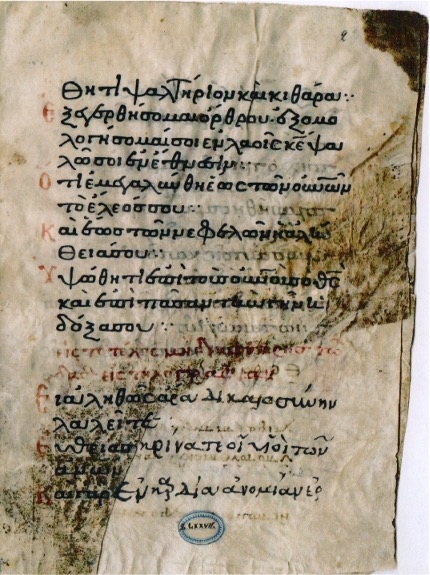 2
θητι ψαλτήριον καὶ κιθάρα:
Ἐξεγερθήσομαι ὄρθρου· ἐξομο
λογήσομαί σοι ἐν λαοῖς κε ψα
λῶ σοι ἐν ἔθνεσιν:
Ὅτι ἐμεγαλύνθη ἕως τῶν οὐνῶν
τὸ ἔλεός σου:
Καὶ ἕως τῶν νεφελῶν ἡ ἀλή
θειά σου:
Ὑψώθητι ἐπὶ τοὺς οὐνοὺς ὁ θς
καὶ ἐπὶ πᾶσαν τὴν γῆν ἡ
δόξα σου
εἰς τὸ τέλος μὴ διαφθείρης τῶ
δαδ εἰς στηλογραφίαν
Εἰ ἀληθῶς ἄρα δικαιοσύνην
λαλεῖτε
Εὐθείας κρίνατε οἱ υἱοὶ τῶν
ανων
Καὶ γὰρ ἐν καρδία ἀνομίαν ἐρ